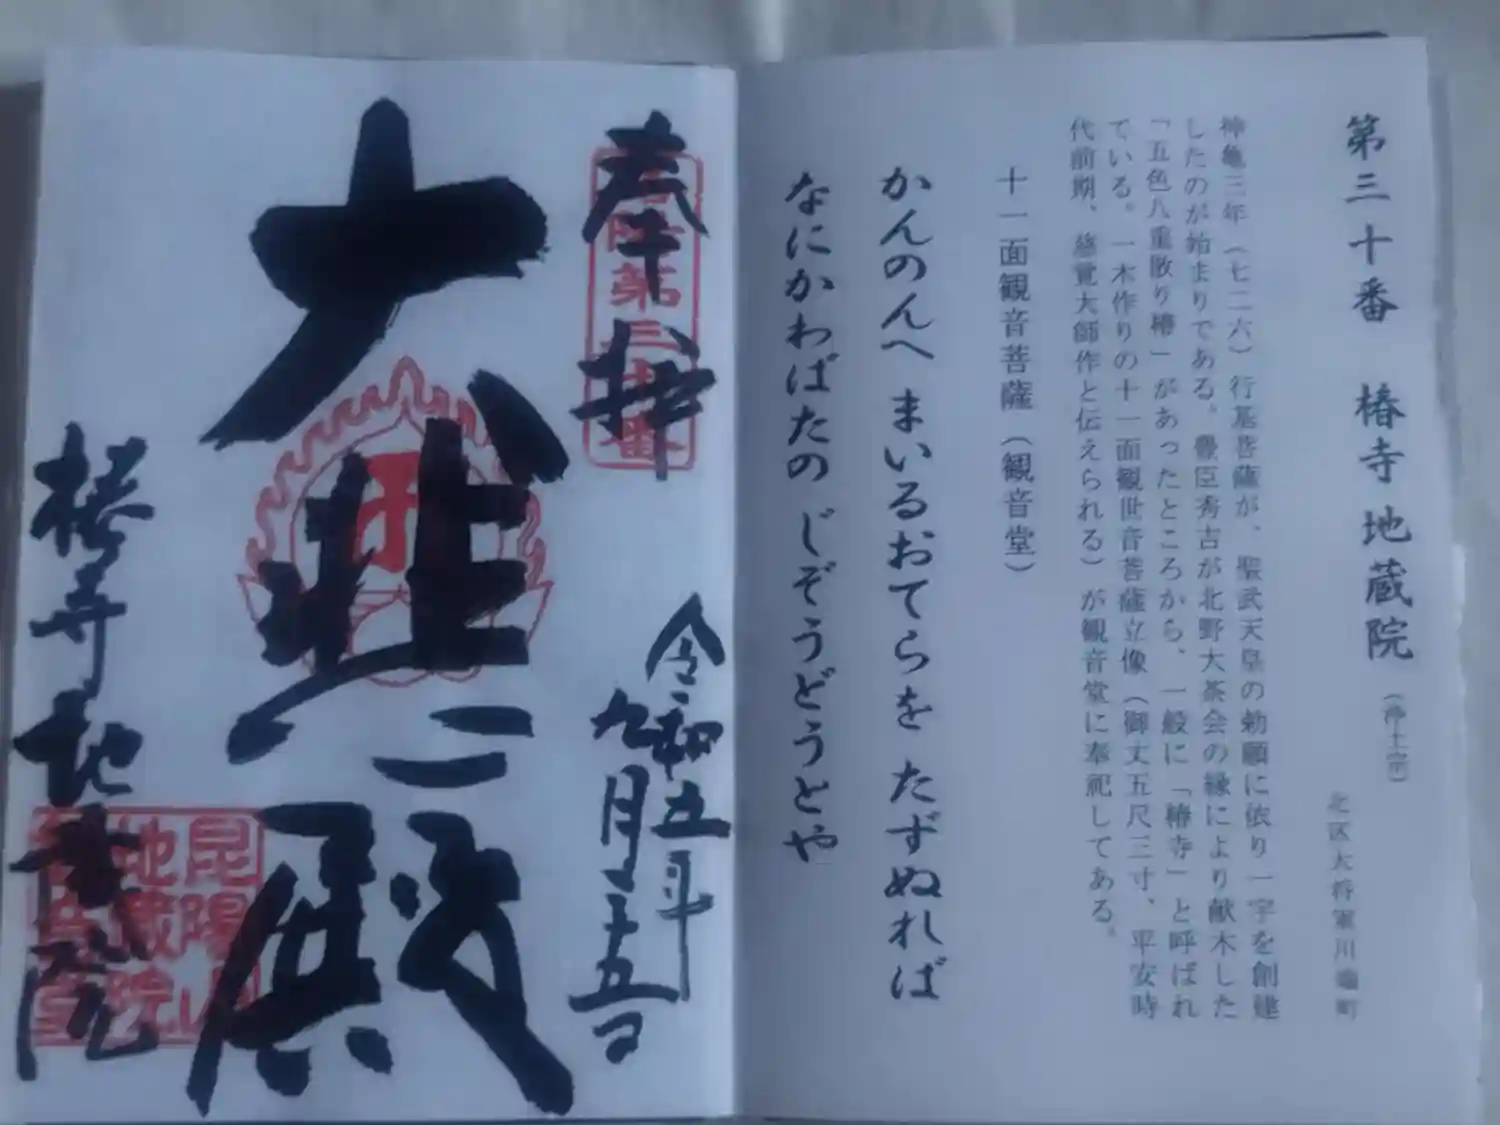 第三十番 椿寺地蔵院（浄土宗）
北区大将軍川端町
神亀三年（七二六）行基菩薩が、聖武天皇の勅願に依り一宇を創建
したのが始まりである。豊臣秀吉が北野大茶会の縁により献木した
「五色八重散り椿」があったところから、一般に「椿寺」と呼ばれ
ている。一木作りの十一面観世音菩薩立像（御丈五尺三寸、平安時
代前期、慈覚大師作と伝えられる）が観音堂に奉祀してある。
十一面観音菩薩（観音堂）
かんのんへ まいるおてらを たずぬれば
なにかわばたの じぞうどうとや
奉拝
第三十番
令和五年
九月二十五日
大悲殿
椿寺地蔵院
昆陽山
地蔵院